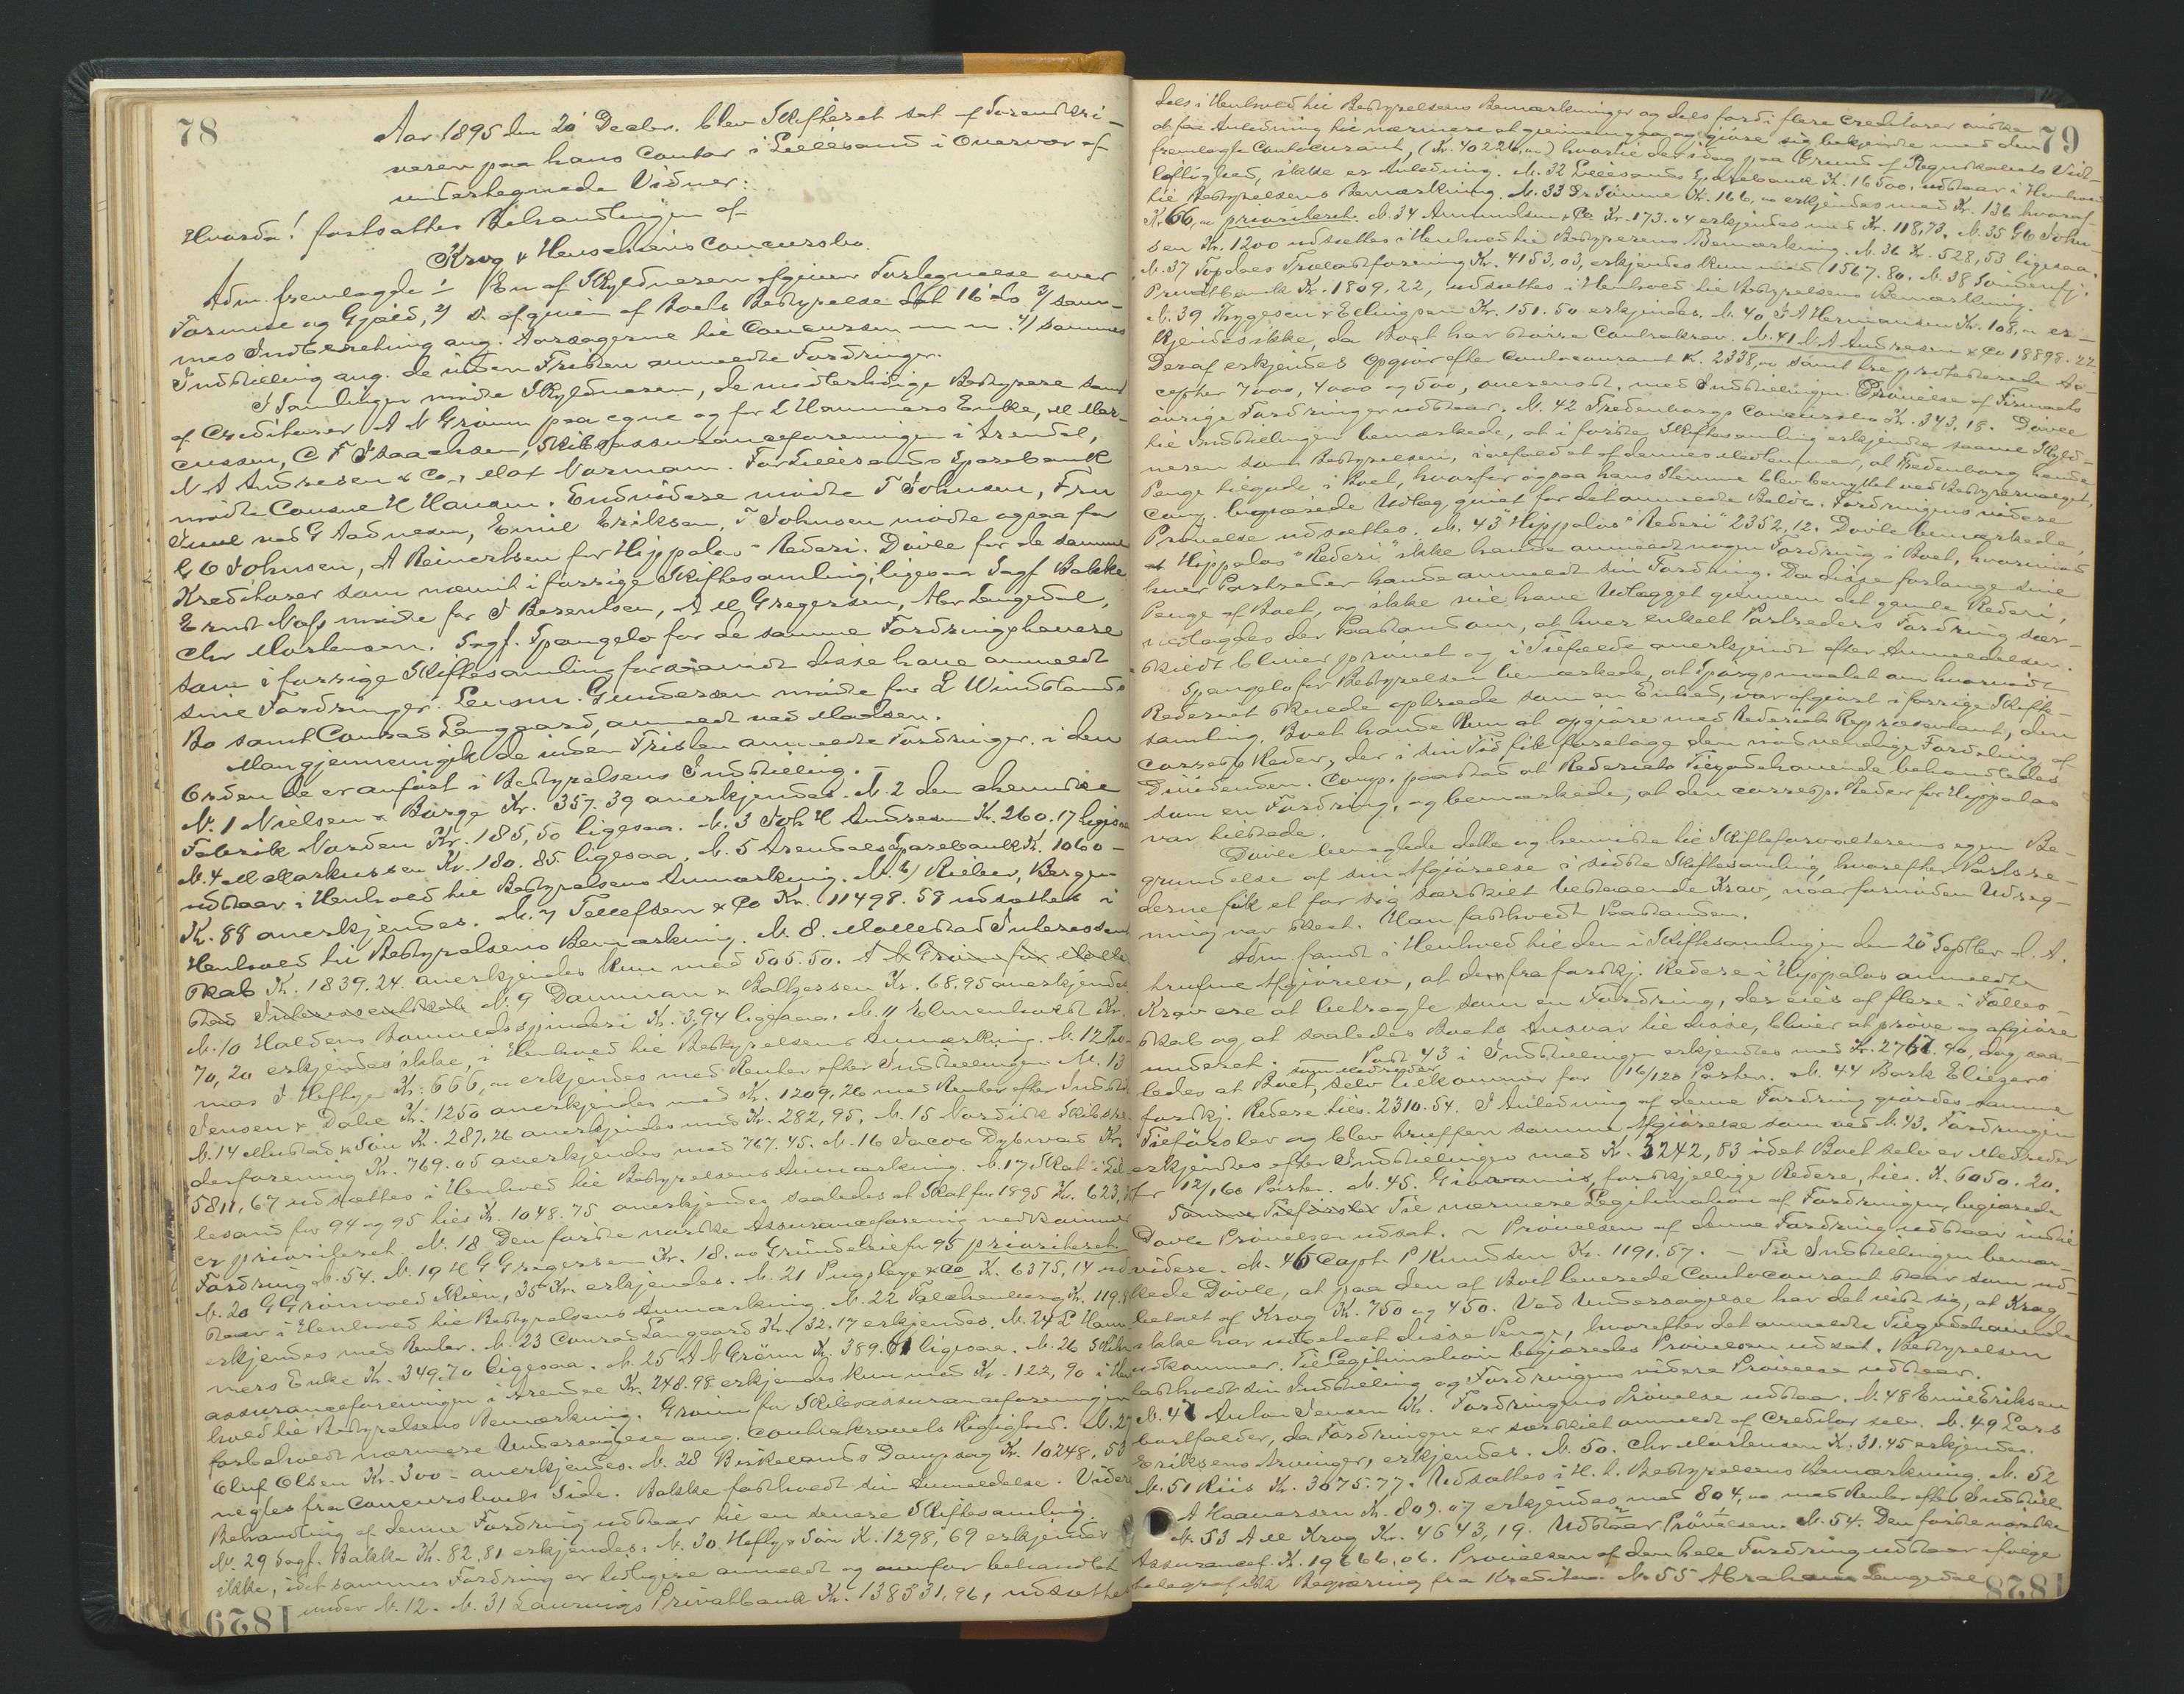 78
Aar 1895 den 20 Decbr. blev Skifteret sat af Sorenskri-
veren paa hans Contor i Lillesand i Overvær af
undertegnede Vidner:
Hvorda! fortsattes Behandlingen af
Krog & Henschiens Concursbo.
Adm. fremlagde 1 En af Skyldneren afgiven Fortegnelse over
Formue og Gjæld, 2) D. afgiven af Boets Bestyrelse dat 16 ds 3) sam-
mes Indberetning ang. Aarsagerne til Concursen 4) sammes
Indstilling ang. de inden Fristen anmeldte Fordringer.
I Samlingen mødte Skyldneren, de midlertidige Bestyrere samt
af Creditorer A N Grönn paa egne og for L Hammers Enke, M Mar-
cussen, C F Isaachsen, Skibsassuranceforeningen i Arendal,
N A Andresen & Co, Max Normann. For Lillesands Sparebank
mødte Consul H Hansen. Endvidere mødte T Johnsen, Fru
Juul ved G Aadnesen, Emil Eriksen, T Johnsen mødte ogsaa for
G O Johnsen, A Reinertsen for Hippalos Rederi. Døvle for de samme
Kreditorer som nævnt i forrige Skiftesamling, ligesaa Sagf Bakke
Ernst Næss mødte for J Berentsen, A M Gregersen, Abr Langedal,
Chr Mortensen. Sagf. Spangelo for de samme Fordringshavere
som i forrige Skiftesamling forsaavidt disse have anmeldt
sine Fordringer. Lensm. Gundersen mødte for L Windslands
Bo samt Conrad Langgard, anmeldt ved Madsen.
Man gjennemgik de inden Fristen anmeldte Fordringer i den
Orden de er anført i Bestyrelsens Indstilling. -
N. 1 Nielsen & Borge Kr. 357.39 anerkjendes. N. 2 den chemiske
Fabrik Norden Kr. 185,50 ligesaa. N. 3 Joh H Andresen Kr. 260.17 ligesaa
N. 4 M Markussen Kr. 180.85 ligesaa. N. 5 Arendals Sparebank K. 1060 -
udstaar i Henhold til Bestyrelsens Anmærkning. N. 6) Rieber, Bergen
Kr. 88 anerkjendes. N. 7 Tellefsen & Co Kr. 11498.59 udsættes i
Henhold til Bestyrelsens Bemærkning. N. 8. Mollestad Interessent
skab Kr. 1839.24 anerkjendes kun med 505.50. A N Grönn for Molle
stad Interessentskab N. 9 Damman & Baltzersen Kr. 68.95 anerkjendes
N. 10 Haldens Bomuldsspinderi Kr. 3,94 ligesaa. N. 11 Kr.
70,20 erkjendes ikke, i Henhold til Bestyrelsens Anmærkning. N. 12 Tho-
mas J. Heftye Kr. 666, erkjendes med Renter efter Indstillingen N. 13
Jensen & Dahl Kr. 1250 anerkjendes med Kr. 1209,26 med Renter efter Indstil
N. 14 Mustad & Søn Kr. 287,26 anerkjendes med Kr. 282,95, N. 15 Nordisk Skibsre-
derforening Kr. 769.05 anerkjendes med 767.45. N. 16 Jacob Dybwad Kr.
5811,67 udsættes i Henhold til Bestyrelsens Anmærkning. N. 17 Skat i Lil-
lesand for 94 og 95 tils Kr. 1048.75 anerkjendes saaledes at Skat for 1895 Kr. 623,
er prioriteret. N. 18 Den første norske Assuranceforening nedkommer
Fordring N. 54. N. 19 H G Gregersen Kr. 18. Grundleie for 95 prioriteret.
N. 20 G Grönvold Skien, 35 Kr. erkjendes. N. 21 Pugsley & Co K. 6375,14 ud
staar i Henhold til Bestyrelsens Anmærkning. N. 22 Falchenberg Kr. 119.
erkjendes med Renter. N. 23 Conrad Langaard Kr. 132.17 erkjendes. N. 24 L Ham-
mers Enke Kr. 349,70 ligesaa. N. 25 A N Grönn Kr. 389.61 ligesaa. N. 26 Skibs
assuranceforeningen i Arendal Kr. 248.98 erkjendes kun med Kr. 122,90 i Hen
hold til Bestyrelsens Bemærkning. Grönn for Skibsassuranceforeningen
forbeholdt nærmere Undersøgelse ang. contrakravets Rigtighed. N. 27
Oluf Olsen Kr. 300 - anerkjendes. N. 28 Birkelands Dampsag Kr. 10248,53
negtes fra Concursboets Side. Bakke fastholdt sin Anmeldelse. Videre
Behandling af denne Fordring udstaar til en senere Skiftesamling.
N. 29 Sagf. Bakke Kr. 82,81 erkjendes. N. 30 Heftye & Søn K. 1298,69 erkjendes
ikke, idet sammes Fordring er tidligere anmeldt og ovenfor behandlet
under N. 12. N. 31 Laurvigs Privatbank Kr. 138531,96, udsættes
18291
79
dels i Henhold til Bestyrelsens Bemærkninger og dels fordi flere Creditorer ønsker
at faa Anledning til nærmere at gjennemgaa og gjøre sig bekjendte med den
fremlagte Contocurant, (Kr. 40226,00) hvortil det idag paa Grund af Regnskabets Vidt-
løftighed, ikke er Anledning. N. 32 Lillesands Sparebank Kr. 16500, udstaar i Henhold
til Bestyrelsens Bemærkning. N. 33 Kr. 166, erkjendes med Kr. 136 hvoraf
Kr 66, prioriteret. N. 34 Amundsen & Co Kr. 173.04 erkjendes med Kr. 118,73. N. 35 G O John-
sen Kr. 1200 udsættes i Henhold til Bestyrerens Bemærkning. N. 36 Kr. 528,53 ligesaa.
N. 37 Topdals Trælastforening Kr. 4153,03, erkjendes kun med 1567.80. N. 38 Søndenfj.
Privatbank Kr. 1809,22, udsættes i Henhold til Bestyrelsens Bemærkning.
N. 39 Thygesen & Ellingsen Kr. 151.50 erkjendes. N. 40 Hermansen Kr. 108, er-
kjendes ikke, da Boet har større Contrakrav. N. 41 N A Andresen & Co 18898.22
Deraf erkjendes Opgjør efter Contocourant K. 2338, samt tre protesterede Ac-
cepter 7000, 4000 og 500, overensst. med Indstillingen Prøvelse af Firmaets
øvrige Fordringer udstaar. N. 42 Fredenborgs Concursbo Kr. 343,18. Døvle
til Indstillingen bemærkede, at i første Skiftesamling erkjendte saavel Skyld-
neren som Bestyrelsen, ialfald et af dennes Medlemmer, at Fredenborg havde
Penge tilgode i Boet, hvorfor ogsaa hans Stemme blev benyttet ved Bestyrervalget.
Comp. begjærede Udlæg givet for det anmeldte Beløb. Fordringens videre
Prøvelse udsættes. N. 43 "Hippalos" Rederi" 2352,12. Døvle bemærkede,
at Hippalos "Rederi" ikke havde anmeldt nogen Fordring i Boet, hvorimod
hver Partreder havde anmeldt sin Fordring. Da disse forlange sine
Penge af Boet, og ikke vil have Udlægget gjennem det gamle Rederi,
nedlagdes der Paastand om, at hver enkelt Partreders Fordring sær-
skildt bliver prøvet og i Tilfælde anerkjendt efter Anmeldelsen.
Spangelo for Bestyrelsen bemærkede, at Spørgsmaalet om hvorvidt
Rederiet skulde optræde som en Enhed, var afgjort i forrige Skifte-
samling. Boet havde kun at opgjøre med Rederiets Repræsentant, den
corresp Reder, der i sin Tid fik foretage den nødvendige Fordeling af
Dividenden. Comp. paastod at Rederiets Tilgodehavende behandledes
som en Fordring, og bemærkede, at den corresp. Reder for Hippalos
var tilstede.
Døvle benegtede dette og henviste til Skifteforvalterens egen Be-
grundelse af sin Afgjørelse i sidste Skiftesamling, hvorefter Partsre-
derne fik et for sig særskilt bestaaende Krav, naar fornøden Udreg-
ning var skeet. Han fastholdt Paastanden.
Adm. fandt i Henhold til den i Skiftesamlingen den 20 Septbr d. A.
trufne Afgjørelse, at de fra forskj. Redere i Hippalos anmeldte
Krav er at betragte som en Fordring, der eies af flere i Fælles-
skab og at saaledes Boets Ansvar til disse, bliver at prøve og afgjøre
underet. — Post 43 i Indstillingen erkjendtes med Kr. 2767.40, dog saa-
ledes at Boet, som Medreder selv tilkommer for 16/120 Parter. N. 44 Bark Eliezers
forskj. Redere tils. 2310.54. I Anledning af denne Fordring gjordes samme
Tilførsler og blev truffen samme Afgjørelse som ved N. 43. Fordringen
erkjendes efter Indstillingen med Kr. 3242,83 idet Boet selv er Medreder
for 12/160 Parter. N. 45. Giovannis, forskjellige Redere, tils. K. 6050.20.
Samme Tilførsler Til nærmere Legitimation af Fordringen begjærede
Døvle Prøvelsen udsat. ~ Prøvelsen af denne Fordring udstaar indtil
videre. N. 46 Capt. P Knudsen Kr. 1191.57. — Til Indstillingen bemær-
kede Døvle, at paa den af Boet leverede Contocourant staar som ud-
betalt af Krog Kr. 750 og 450. Ved Undersøgelse har det vist sig, at Krog
ikke har udbetalt disse Penge, hvorefter det anmeldte Tilgodehavende
udkommer. Til Legitimation begjæredes Prøvelsen udsat. Bestyrelsen
fastholdt sin Indstilling og Fordringens videre Prøvelse udstaar.
N. 47 Anton Jensen Kr. Fordringens Prøvelse udstaar. N. 48 Emil Eriksen
bortfalder, da Fordringen er særskilt anmeldt af Creditor selv. N. 49 Lars
Eriksens Arvinger, erkjendes. N. 50. Chr Mortensen K. 31.45 erkjendes.
N. 51 Riis Kr. 3075.77. Udsættes i H. t. Bestyrelsens Bemærkning. N. 52
A Haaversen Kr. 809.07 erkjendes med 804, med Renter efter Indstill
N. 53 A M Krog Kr. 4643,19. Udstaar Prøvelsen. N. 54. Den første norske
Assurancef. K. 19666,06. Prøvelsen af den hele Fordring udstaar ifølge
telegrafisk Begjæring fra Kreditor. N. 55 Abraham Langedal
1828